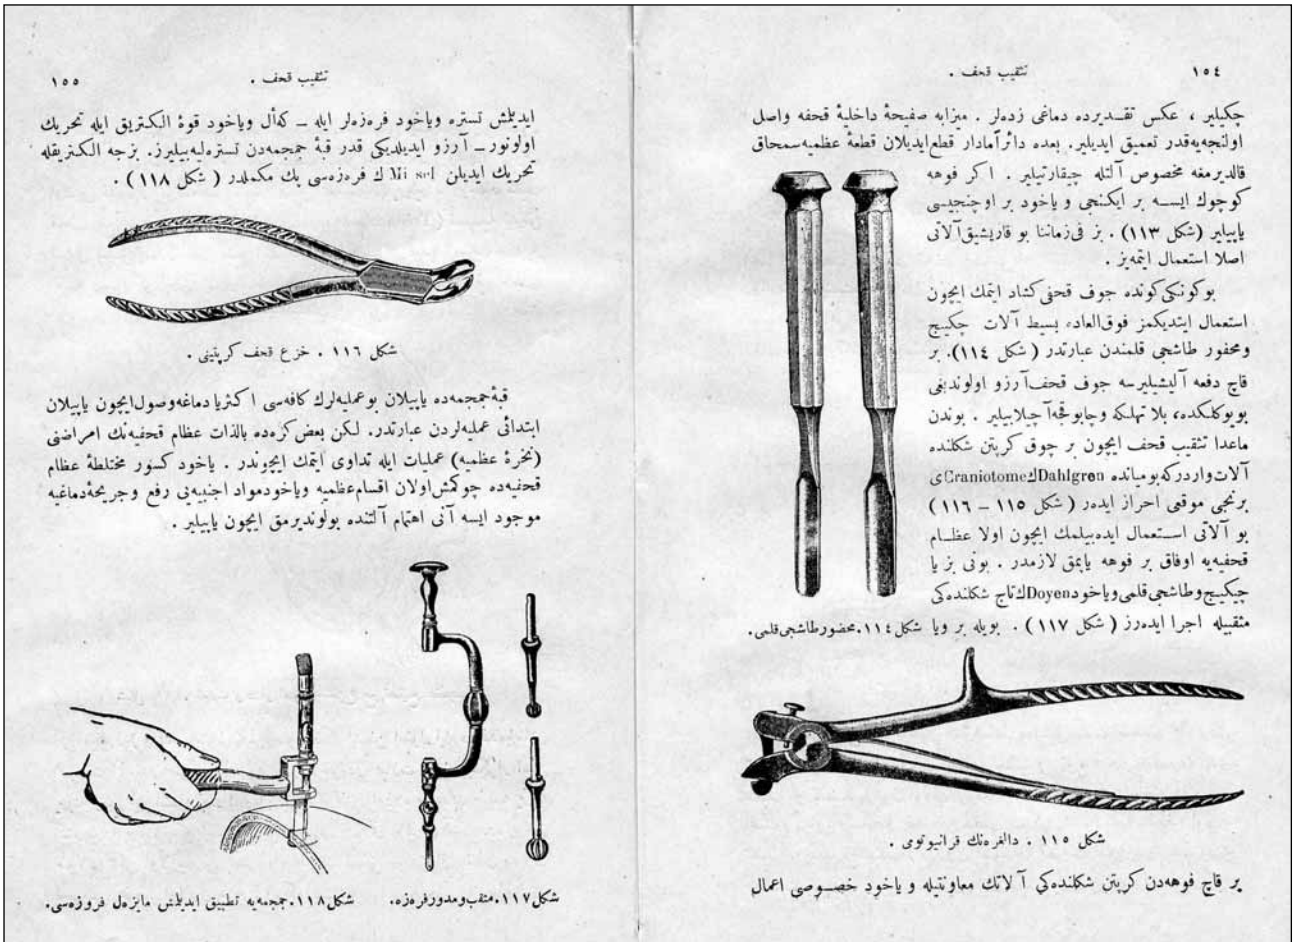 ١٥٤
تثقیب قحف .
چکیلیر ، عکس تقـدیرده دماغی زده‌لر . میزابه صفیحهٔ داخلیهٔ قحفه واصل
اولنجه‌یه‌قدر تعمیق ایدیلیر. بعده دائراًمادار قطع‌ایدیلان قطعهٔ عظمیه سمحاق
قالدیرمغه مخصوص آلتله چیقارتیلیر . اکر فوهه
کوچوك ایسـه بر ایکنجی و یاخود بر اوچنجیسی
یاپیلیر (شکل ١١٣) . بز فی‌زماننا بو قاریشیق‌آلاتی
اصلا استعمال ایتمه‌یز .
بوکونکی‌کونده جوف قحفی‌کشاد ایتمك ایچون
استعمال ایتدیکمز فوق‌العاده بسیط آلات چکیج
ومحفور طاشجی قلمندن عبارتدر (شکل ١١٤). بر
قاچ دفعه آلدشیلیرسه جوف قحف‌آرزو اولوندیغی
بویوکلکده، بلا تهلکه وچابوقجه‌آچیلابیلیر . بوندن
ماعدا تثقیب قحف ایچون بر چوق کرپتن شکلنده
آلات‌واردرکه‌بومیانده Dahlgrenك‌Craniotome‌ی
برنجی موقعی احراز ایدەر (شکل ١١٥ – ١١٦)
بو آلاتی اسـتعمال ایده‌بیلمك ایچون اولا عظـام
قحفیه‌یه اوفاق بر فوهه یاپمق لازمدر . بونی بز یا
چیکیج‌وطاشجی‌قلمی‌ویاخودDoyenك‌تاج شکلنده‌کی
مثقبیله اجرا ایده‌رز (شکل ١١٧) . بویله بر ویا
شکل ١١٤.محضورطاشجی‌قلمی.
شکل ١١٥ . دالغره‌نك قرانیوتومی .
بر قاچ فوهه‌دن کرپتن شکلنده‌کی آلاتك معاونتیله و یاخود خصـوصی اعمال
١٥٥
تثقیب قحف .
ایدیلمش تستره ویاخود فره‌زه‌لر ایله – که‌أل ویاخود قوهٔ الکتریق ایله تحریك
اولونور– آرزو ایدیلدیکی قدر قبهٔ جمجمه‌دن تستره‌لیه‌بیلیرز. بزجه الکتریقله
تحریك ایدیلن ك فره‌زه‌سی پك مکملدر (شکل ١١٨) .
شکل ١١٦ . خزع قحف کرپتینی .
قبهٔ‌جمجمه‌ده یاپیلان بوعملیه‌لرك کافه‌سی اکثریا دماغه‌وصول‌ایچون یاپیلان
ابتدائی عملیه‌لردن عبارتدر. لکن بعض‌کره‌ده بالذات عظام قحفیه‌نك امراضنی
(نخرهٔ عظمیه) عملیات ایله تداوی ایتمك ایچوندر . یاخود کسور مختلطهٔ عظام
قحفیه‌ده چوکمش‌اولان اقسام‌عظمیه ویاخودمواد اجنبیه‌یی رفع وجریحهٔ‌دماغیه
موجود ایسه آنی اهتمام آلتنده بولوندیرمق ایچون یاپیلیر .
شکل١١٧.مثقب‌ومدورفره‌زه.
شکل١١٨.جمجمه‌یه تطبیق ایدیلمش مایزه‌ل فروزه‌سی.